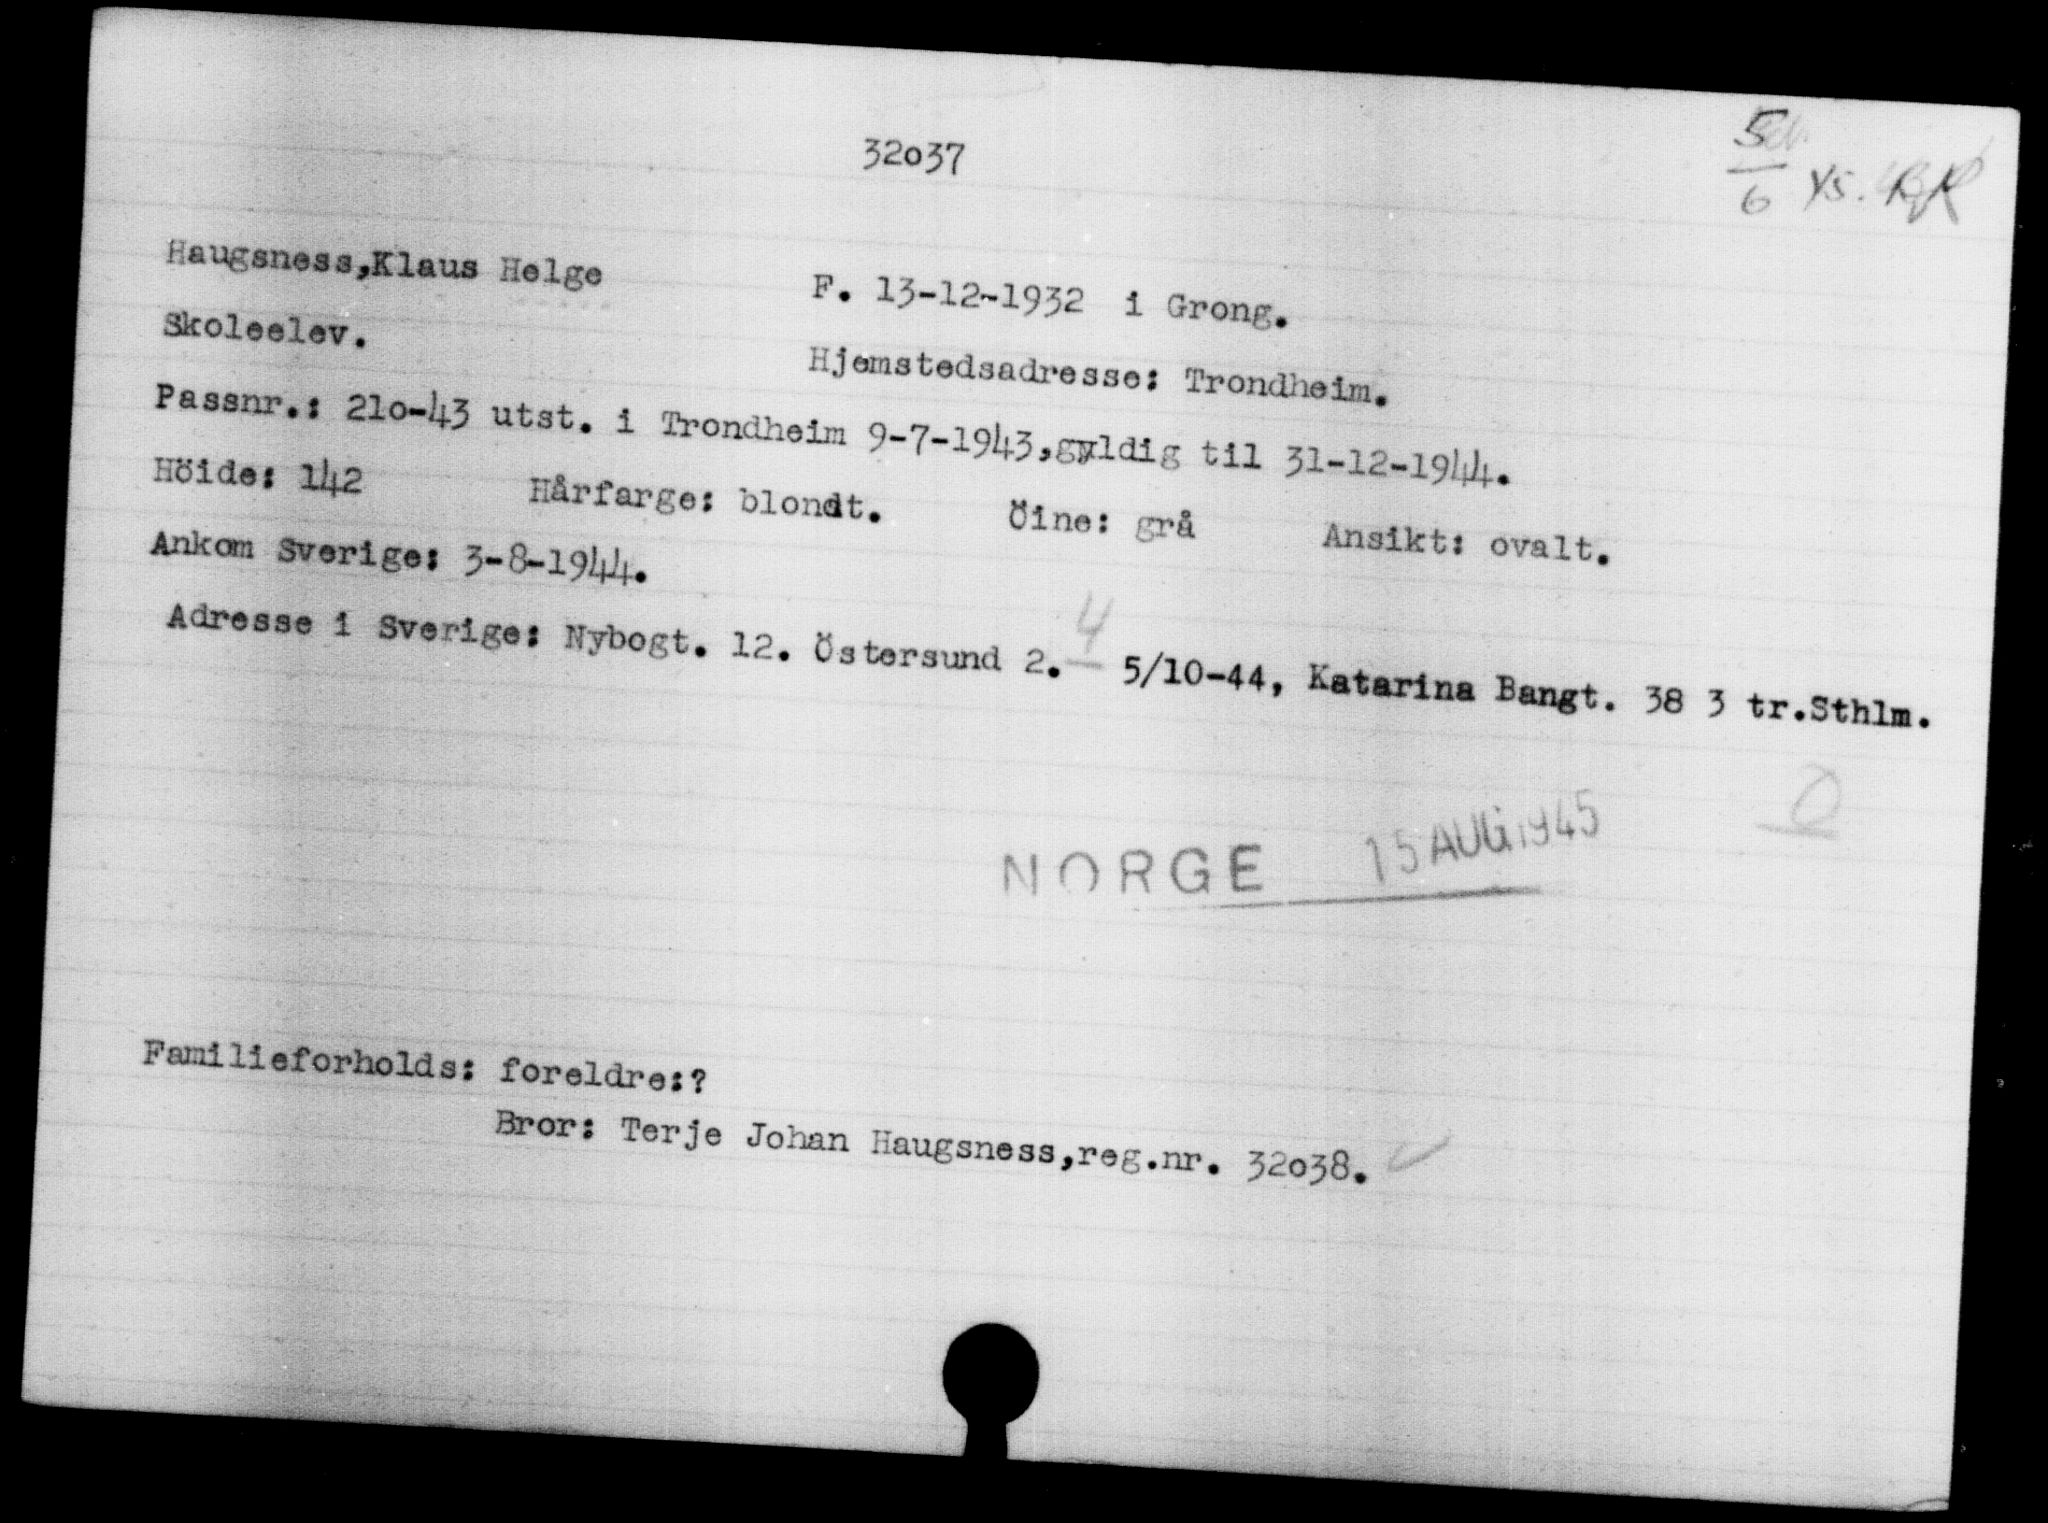 32037
5/6 45.
Haugsness,Klaus Helge F. 13-12-1932 i Grong.
Skoleelev. Hjemstedsadresse: Trondheim.
Passnr.: 21o-43 utst. i Trondheim 9-7-1943,gyldig til 31-12-1944.
Höide: 142 Hårfarge: blondt. Öine: grå Ansikt: ovalt.
Ankom Sverige: 3-8-1944.
4
Adresse i Sverige: Nybogt. 12. Östersund 2. 5/10-44, Katarina Bangt. 38 3 tr.Sthlm.
NORGE 15 AUG 1945
Familieforholds: foreldre:?
Bror: Terje Johan Haugsness,reg.nr. 32o38.